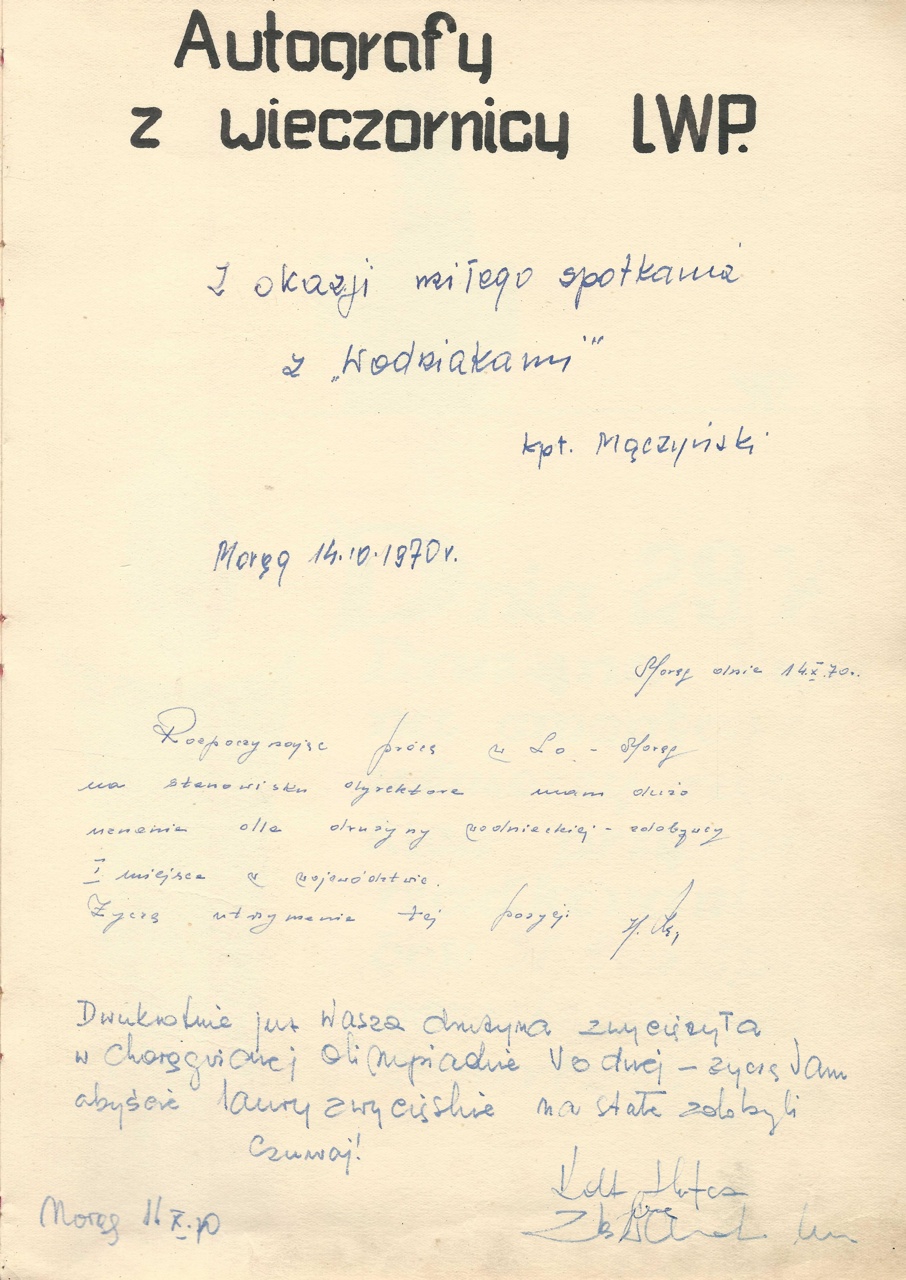 Autografy
z wieczornicy LWP.
Z okazji miłego spotkania
z „Wodziakami"
kpt. Mączyński
Morąg 14.10.1970r.
Morąg dnia 14.X.70r.
Rozpoczynając pracę w Lo - Morąg
na stanowisku dyrektora mam dużo
uznania dla drużyny wodniackiej - zdobywcy
I miejsca w województwie.
Życzę utrzymania tej pozycji
Dwukrotnie już Wasza drużyna zwyciężyła
w chorągwianej olimpiadzie Wodnej - życzę Wam
abyście laury zwycięskie na stałe zdobyli
Czuwaj!
Morąg X.70